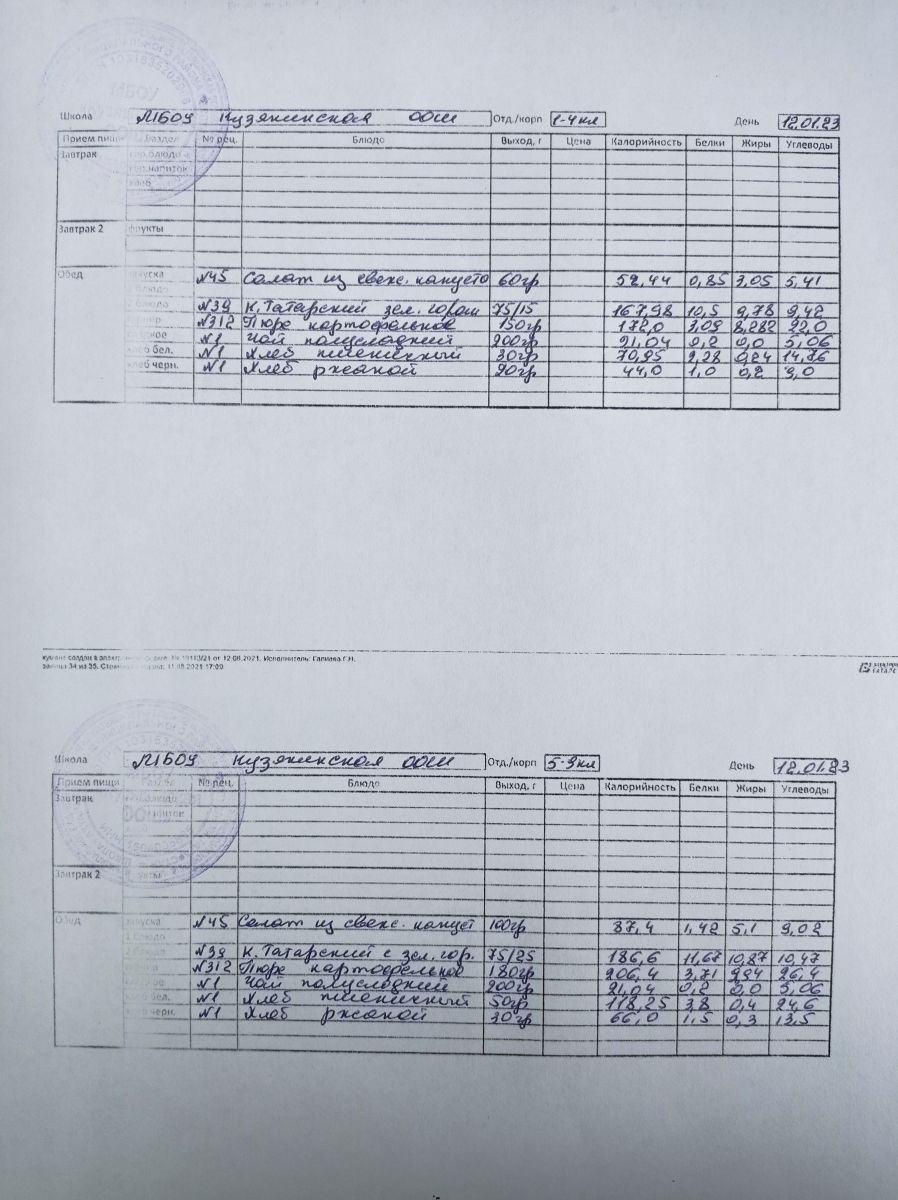 Школа МБОУ Кузякинская ООШ Отд./корп 1-4 кл День 12.01.23
Прием пищи Раздел № рец. Блюдо Выход, г Цена Калорийность Белки Жиры Углеводы
Завтрак гор.блюдо
гор.напиток
хлеб
Завтрак 2 фрукты
Обед закуска №45 Салат из свеж. капусто 60гр 52,44 0,85 3,05 5,41
1 блюдо
2 блюдо №39 К. Татарский зел. горош 75/15 167,98 10,5 9,78 9,42
№312 Пюре картофельное 150гр 172,0 3,09 8,282 22,0
№1 Чай полусладкий 200гр 21,04 0,2 0,0 5,06
хлеб бел. №1 Хлеб пшеничный 30гр 70,95 2,28 0,24 14,76
хлеб черн. №1 Хлеб ржаной 20гр 44,0 1,0 0,2 9,0
от 12.08.2021. Исполнитель: Галиева Г.Н.
11.08.2021 17:09
Школа МБОУ Кузякинская ООШ Отд./корп 5-9 кл День 12.01.23
Прием пищи № рец. Блюдо Выход, г Цена Калорийность Белки Жиры Углеводы
Завтрак
Завтрак 2
Обед закуска №45 Салат из свеж. капуст 100гр 87,4 1,42 5,1 9,02
№39 К. Татарский с зел. гор. 75/25 186,6 11,67 10,87 10,47
№312 Пюре картофельное 180гр 206,4 3,71 9,94 26,4
№1 Чай полусладкий 200гр 21,04 0,2 0,0 5,06
хлеб бел. №1 Хлеб пшеничный 50гр 118,25 3,8 0,4 24,6
хлеб черн. №1 Хлеб ржаной 30гр 66,0 1,5 0,3 13,5